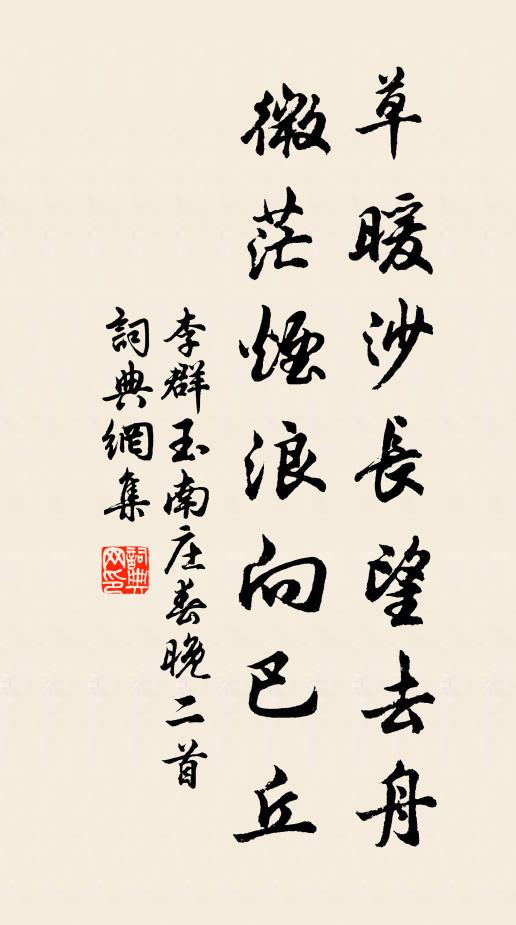 草暖沙長望去舟
微茫煙浪向巴丘
李群玉南庄春晚二首
詞典網集
詞典網印